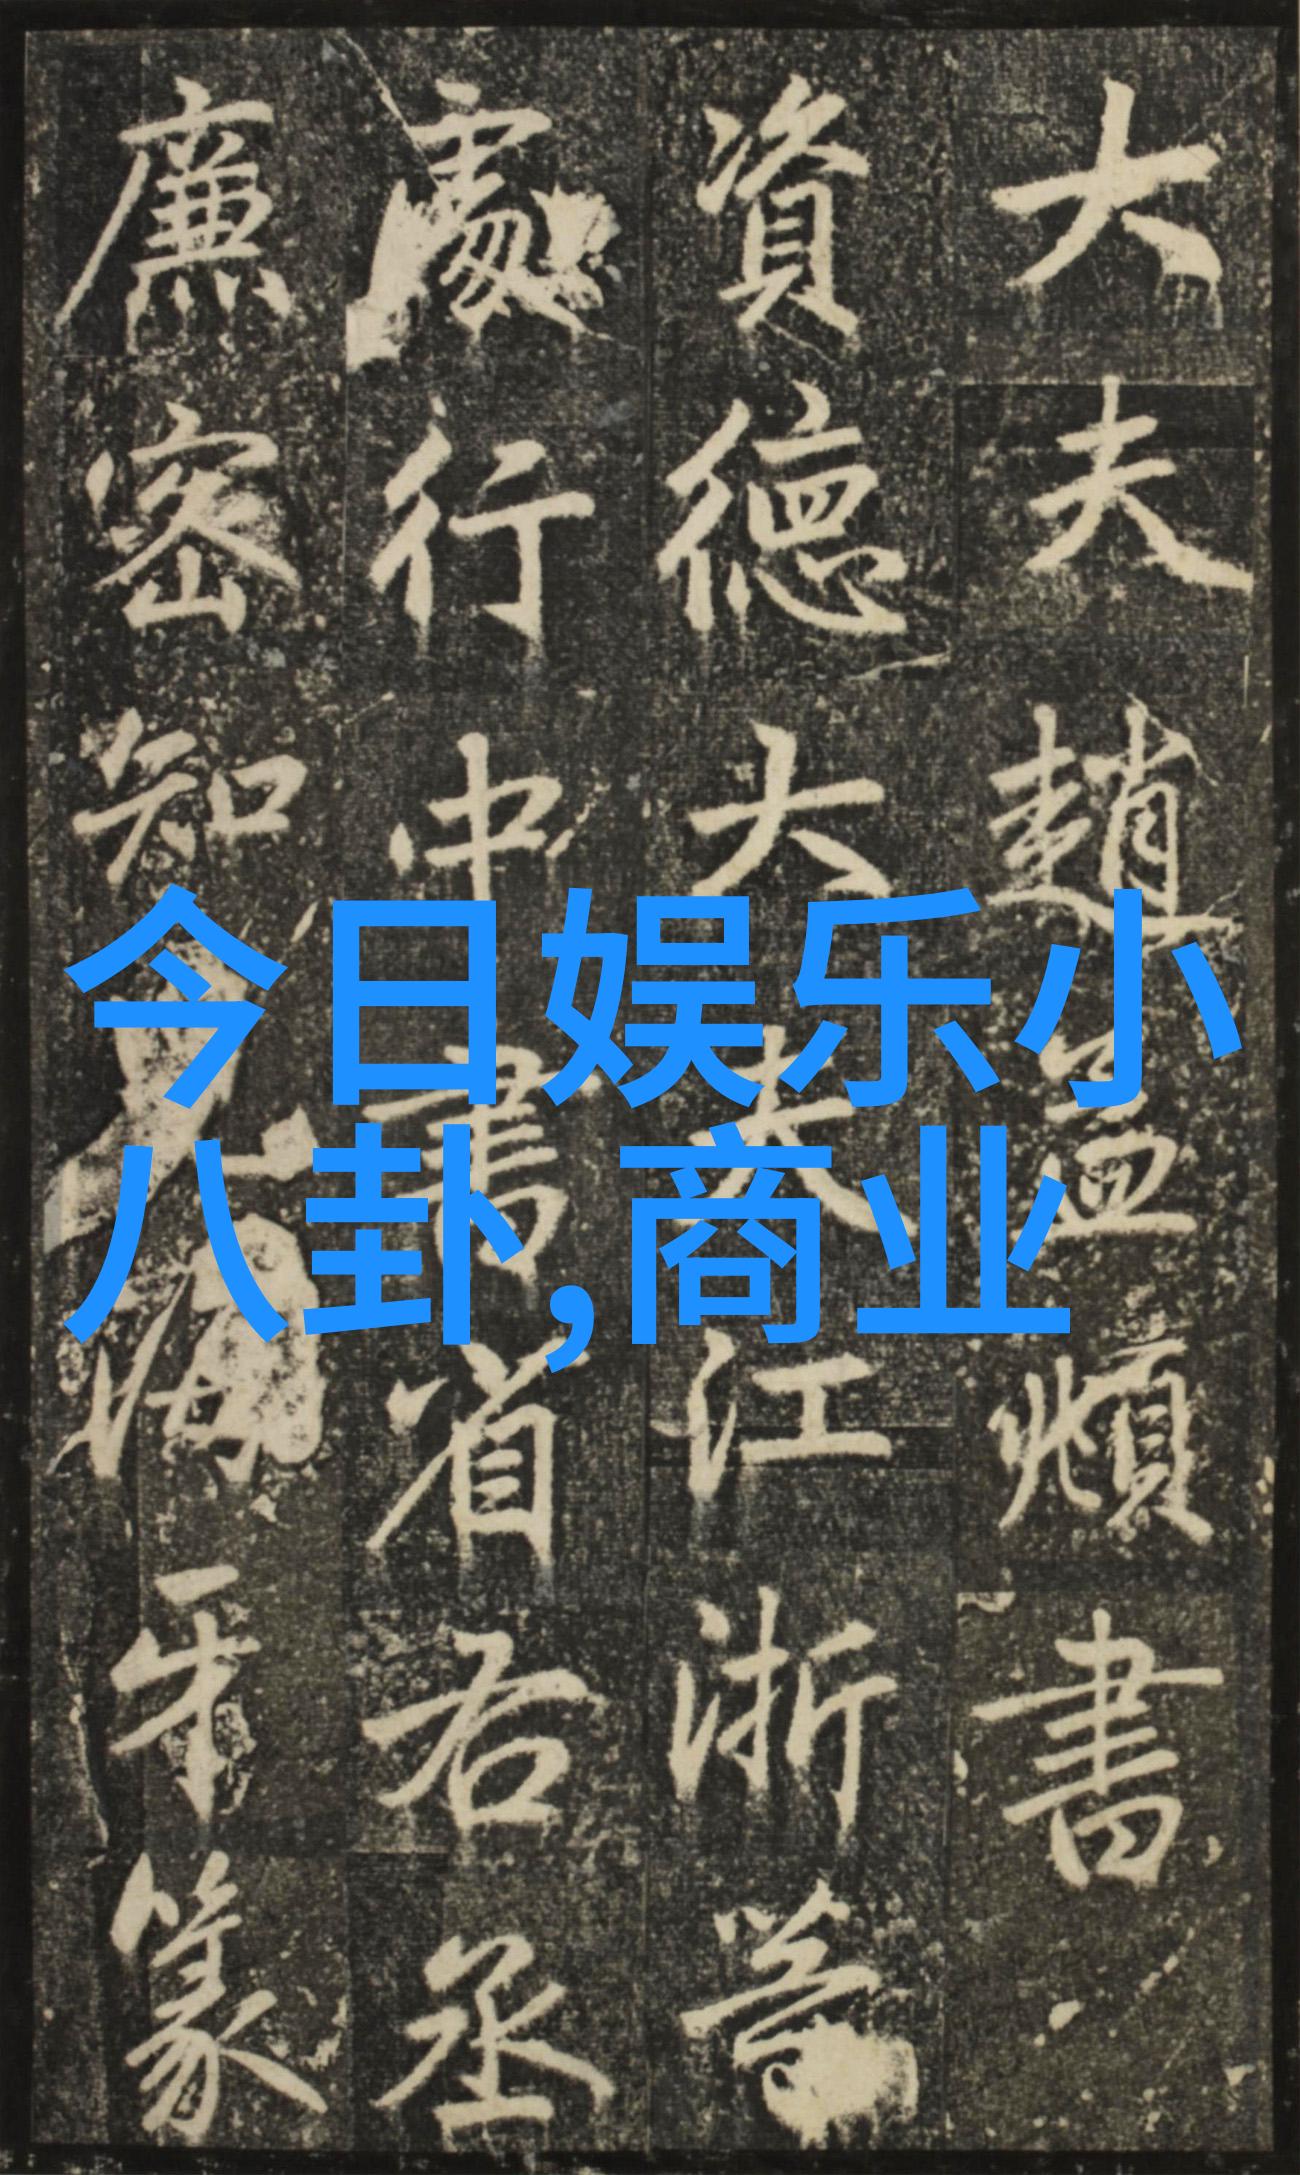 大夫趙孟頫書
資德大夫江浙等
處行中書省右丞
廉密知兒海牙篆
今日娱乐小
八卦,商业